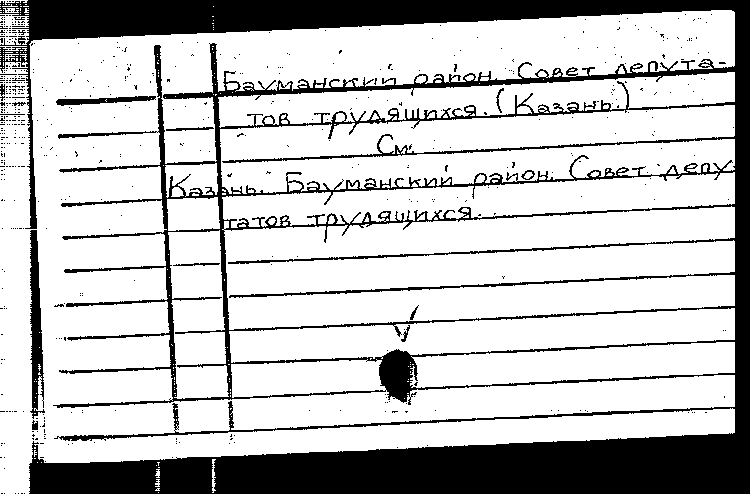 Бауманский район. Совет депута-
тов трудящихся. (Казань.)
См.
Казань. Бауманский район. Совет депу-
татов трудящихся.